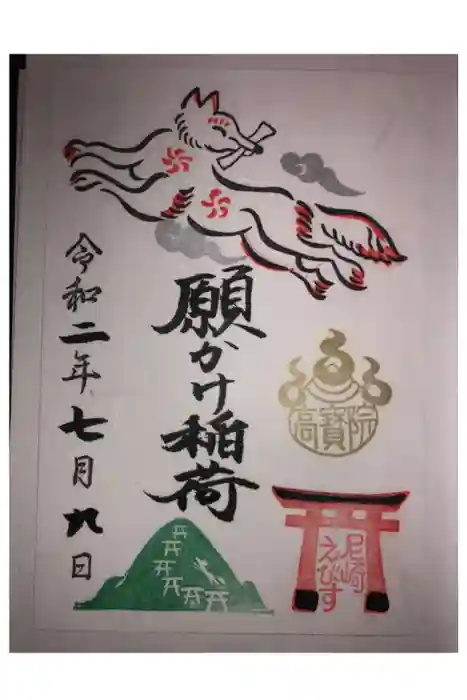 願かけ稲荷
令和二年七月九日
高寶院
尼崎
えびす